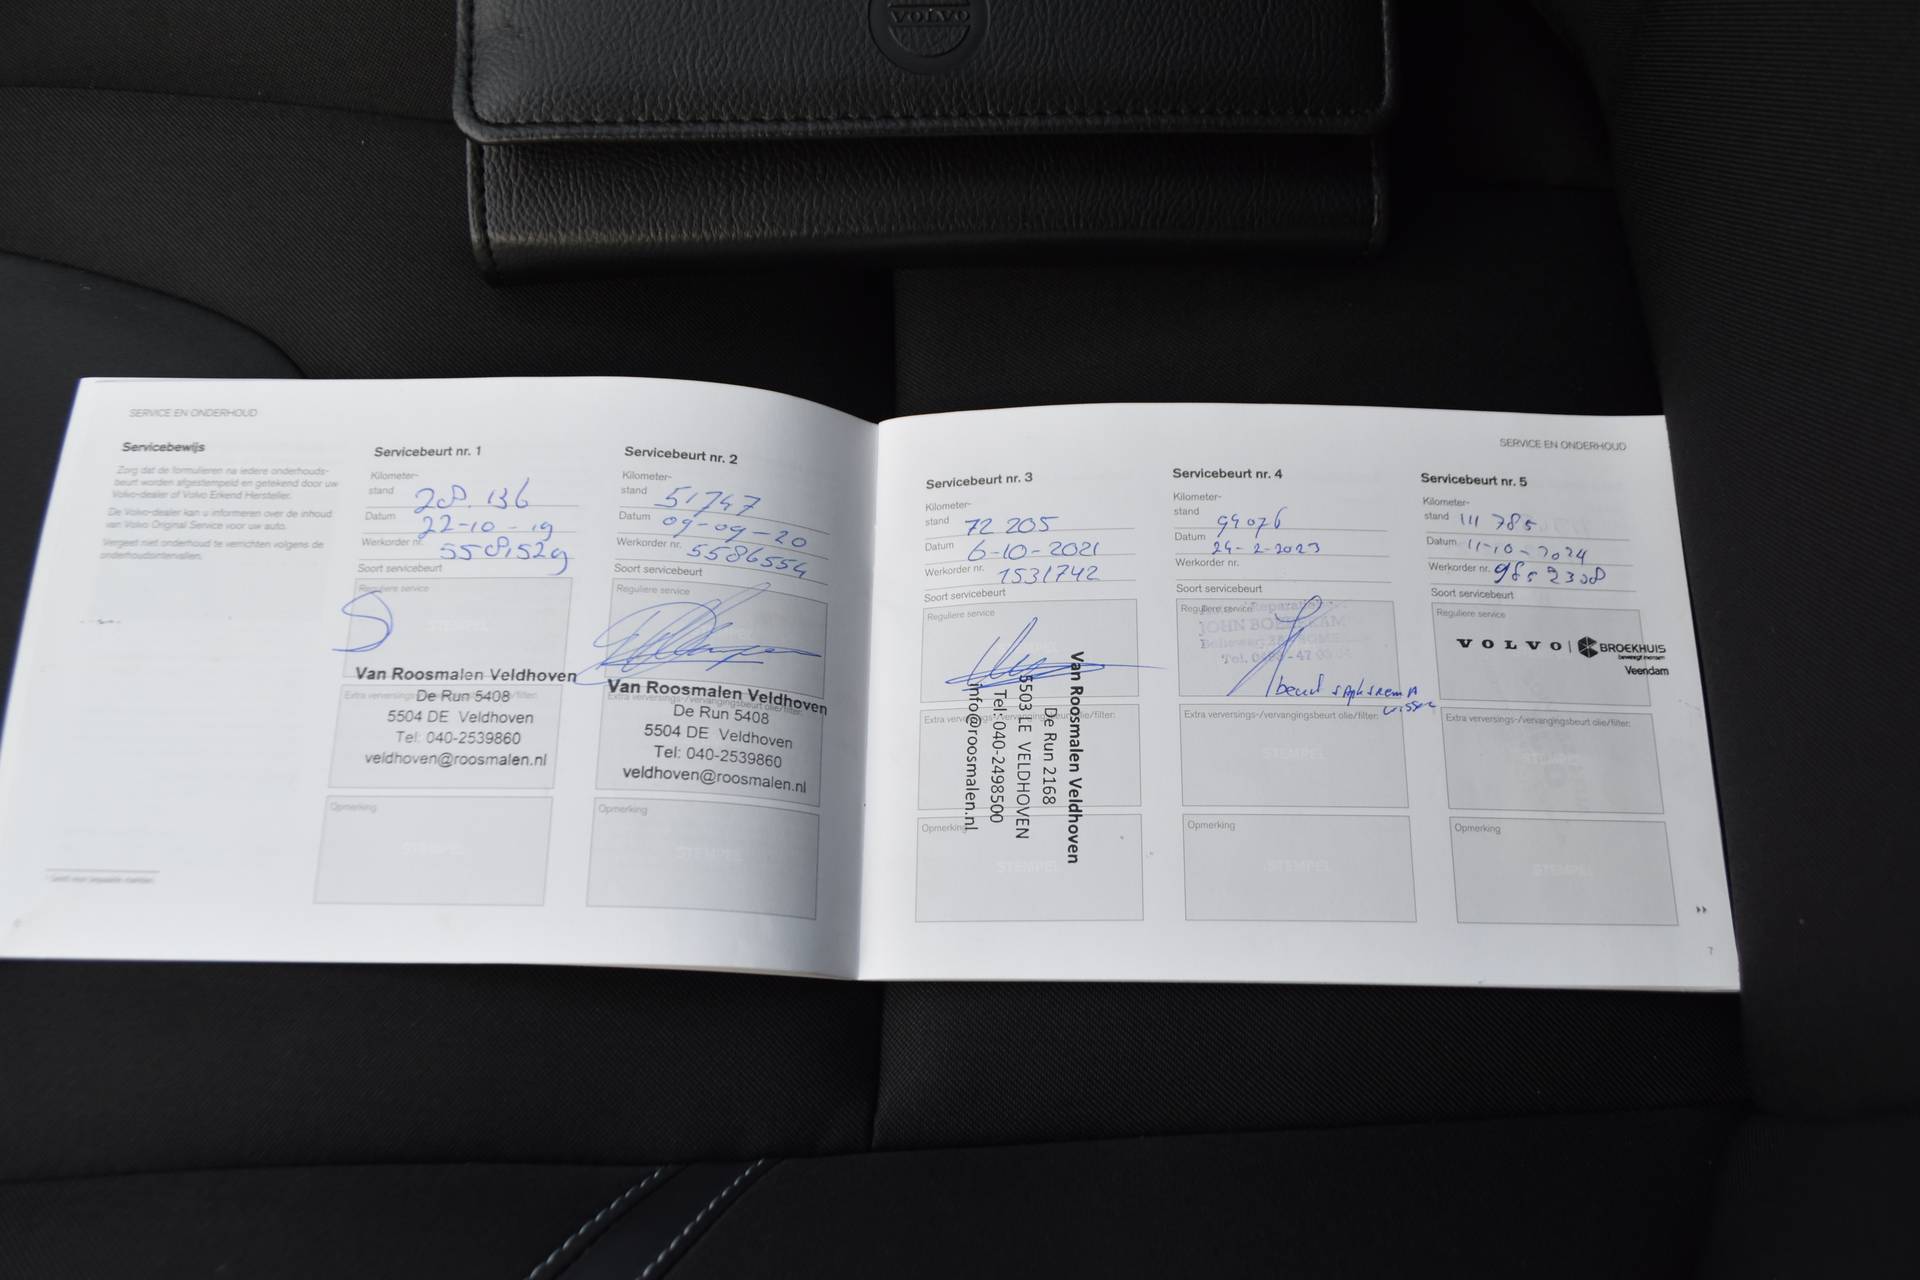 VOLVO
SERVICE EN ONDERHOUD
Servicebewijs
Zorg dat de formulieren na iedere onderhouds-
beurt worden afgestempeld en getekend door uw
Volvo-dealer of Volvo Erkend Hersteller.
De Volvo-dealer kan u informeren over de inhoud
van Volvo Original Service voor uw auto.
Vergeet niet onderhoud te verrichten volgens de
onderhoudsintervallen.
Servicebeurt nr. 1
Kilometer-
stand 28.136
Datum 22-10-19
Werkorder nr. 5581529
Soort servicebeurt
Reguliere service
STEMPEL
Van Roosmalen Veldhoven
Extra verversings-/vervangingsbeurt olie/filter:
De Run 5408
5504 DE Veldhoven
Tel: 040-2539860
veldhoven@roosmalen.nl
Opmerking
STEMPEL
Servicebeurt nr. 2
Kilometer-
stand 51747
Datum 09-09-20
Werkorder nr. 5586554
Soort servicebeurt
Reguliere service
Van Roosmalen Veldhoven
Extra verversings-/vervangingsbeurt olie/filter:
De Run 5408
5504 DE Veldhoven
Tel: 040-2539860
veldhoven@roosmalen.nl
Opmerking
STEMPEL
Servicebeurt nr. 3
Kilometer-
stand 72 205
Datum 6-10-2021
Werkorder nr. 1531742
Soort servicebeurt
Reguliere service
Van Roosmalen Veldhoven
De Run 2168
5503 LE VELDHOVEN
Tel: 040-2498500
info@roosmalen.nl
Extra verversings-/vervangingsbeurt olie/filter:
Opmerking
STEMPEL
SERVICE EN ONDERHOUD
Servicebeurt nr. 4
Kilometer-
stand 94076
Datum 24-2-2023
Werkorder nr.
Soort servicebeurt
Reguliere service
JOHN
Tel.
beurt
Extra verversings-/vervangingsbeurt olie/filter:
STEMPEL
Opmerking
STEMPEL
Servicebeurt nr. 5
Kilometer-
stand 111 785
Datum 11-10-2024
Werkorder nr. 9852308
Soort servicebeurt
Reguliere service
VOLVO | BROEKHUIS
beweegt mensen
Veendam
Extra verversings-/vervangingsbeurt olie/filter:
STEMPEL
Opmerking
STEMPEL
7